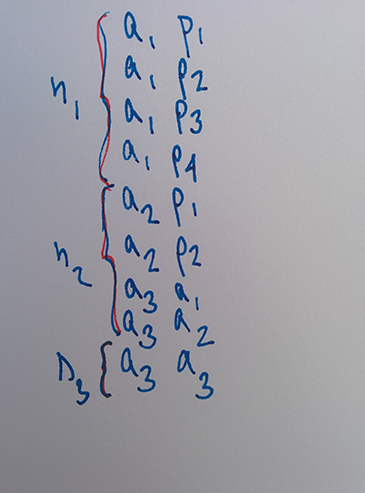 a₁ p₁
a₁ p₂
n₁ a₁ p₃
a₁ p₄
a₂ p₁
a₂ p₂
n₂ a₃ a₁
a₃ a₂
n₃ a₃ a₃